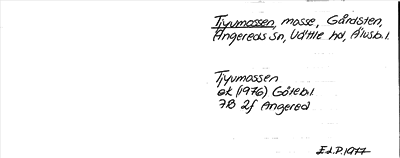 Tjyvmossen, mosse, Gårdsten,
Angereds sn, Vättle hd, Älvsb.l.
Tjyvmossen
ek (1976) Göteb.l.
7B 2f Angered
E.L.P. 1977